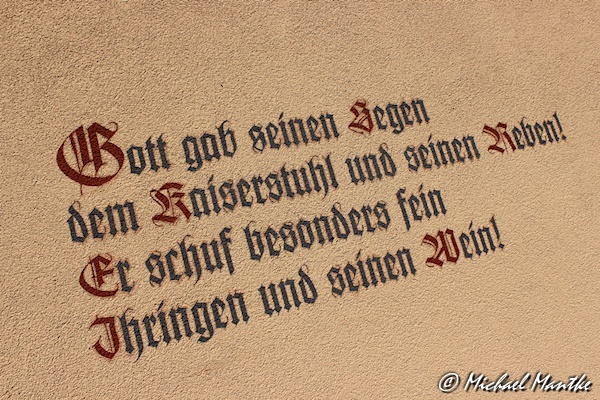 Gott gab seinen Segen
dem Kaiserstuhl und seinen Reben!
Er schuf besonders fein
Ihringen und seinen Wein!
© Michael Mantke